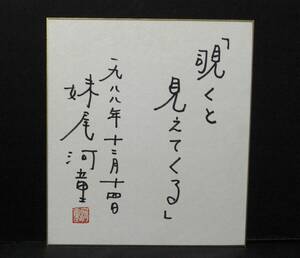 「覗くと
見えてくる」
一九八八年十二月十四日
妹尾河童